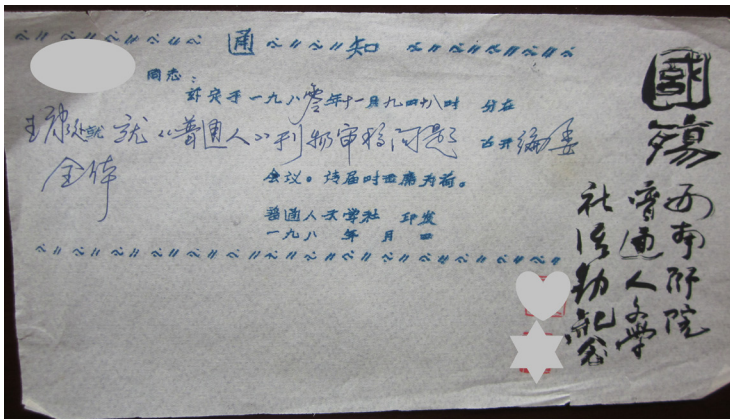 通知
同志：
兹定于一九八零年十一月九日十八时 分在
王康处就 就《普通人》刊物审稿问题 召开编委
全体
会议。请届时出席为荷。
普通人文学社 印发
一九八 年 月 日
國殤
西南師院
普通人文學
社活動記念